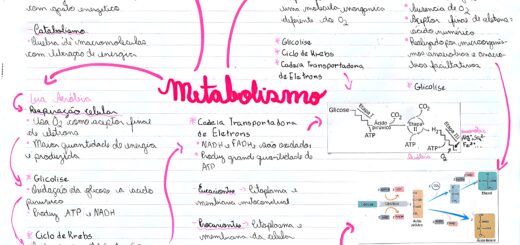 com gasto energético
- Catabolismo
* Quebra de macromoléculas
com liberação de energia
uma molécula inorgânica
diferente do O2
* Glicólise
* Ciclo de Krebs
* Cadeia Transportadora
de Elétrons
ausência de O2
* Aceptor final de elétrons:
ácido numérico
* Realizado por microorganis-
mos anaeróbios e anaeró-
bios facultativos
* Glicólise
Metabolismo
Via Aeróbia
Respiração celular
* Usa O2 como aceptor final
de elétrons
* Maior quantidade de energia
é produzida
* Glicólise
* Oxidação da glicose a ácido
pirúvico
* Produz ATP e NADH
* Ciclo de Krebs
* Cadeia Transportadora
de Elétrons
* NADH e FADH2 são oxidados
* Produz grande quantidade de
ATP
Eucarionte -> Citoplasma e
membrana mitocondrial
Procarionte -> Citoplasma e
membrana da célula
Glicose
Etapa I
ATP
Ácido
pirúvico
CO2
Etapa
II
ATP
CO2
Etapa III
Etanol